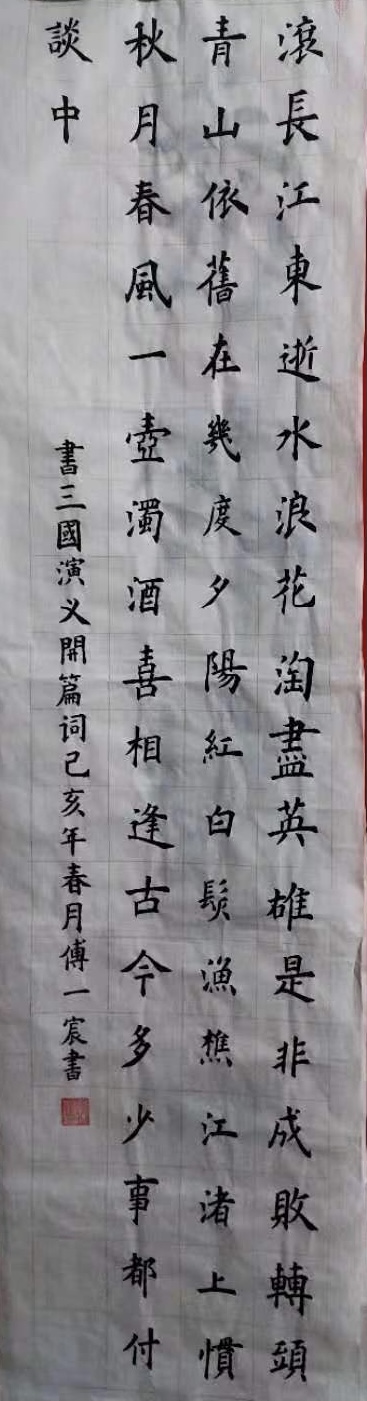 滾長江東逝水浪花淘盡英雄是非成敗轉頭
青山依舊在幾度夕陽紅白髮漁樵江渚上慣
秋月春風一壺濁酒喜相逢古今多少事都付
談中
書三國演义開篇词己亥年春月傅一宸書